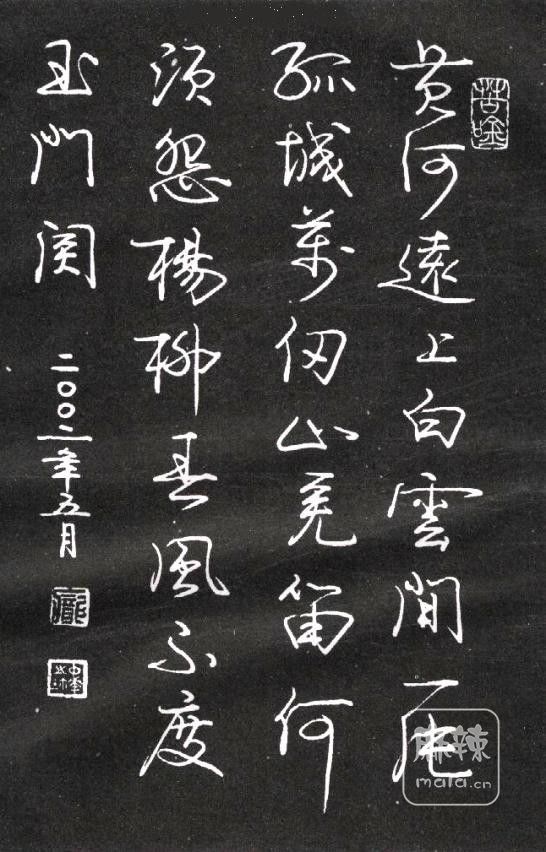 黄河遠上白雲間一片
孤城萬仞山羌笛何
須怨楊柳春風不度
玉門関
二〇〇二年五月
麻辣
mala.cn